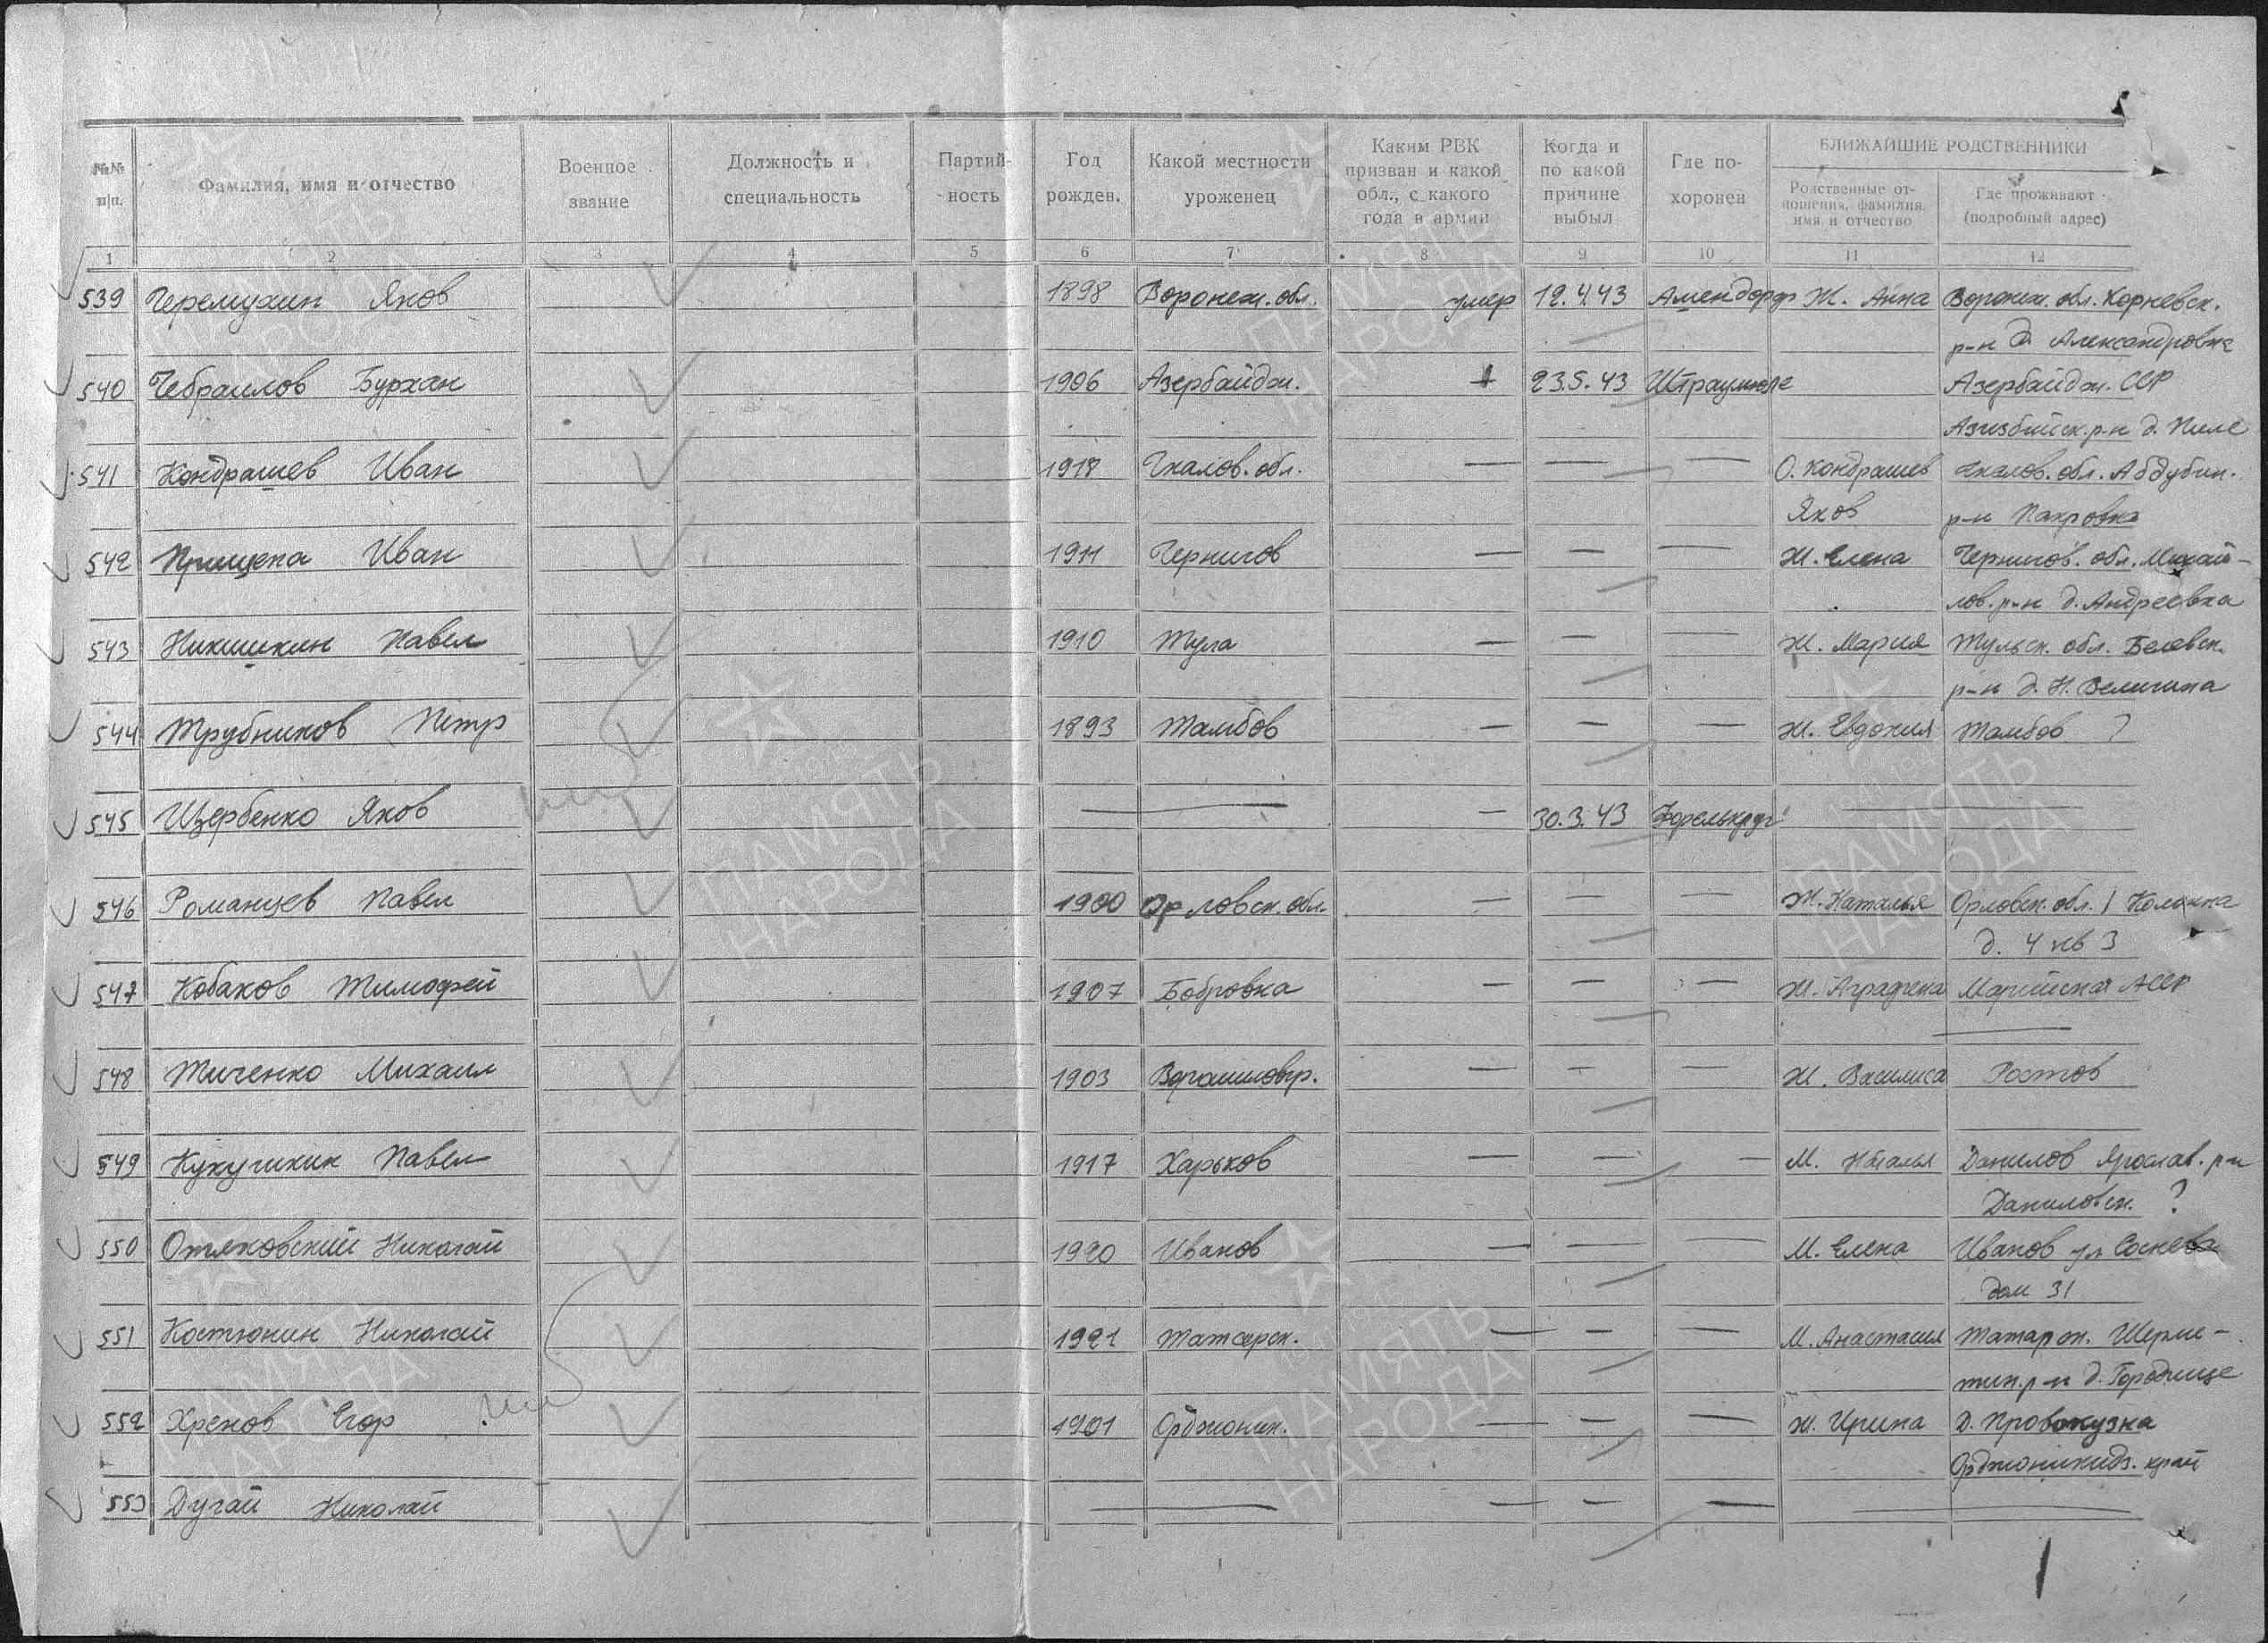 №№ п|п.
Фамилия, имя и отчество
Военное звание
Должность и специальность
Партийность
Год рожден.
Какой местности уроженец
Каким РВК призван и какой обл., с какого года в армии
Когда и по какой причине выбыл
Где похоронен
БЛИЖАЙШИЕ РОДСТВЕННИКИ
Родственные отношения, фамилия, имя и отчество
Где проживают (подробный адрес)
1 2 3 4 5 6 7 8 9 10 11 12
539 Черемухин Яков 1898 Воронеж. обл. умер 12.4.43 Амендорф Ж. Анна Воронеж. обл. Хорневск.
р-н д. Александровка
540 Чебраилов Бурхан 1906 Азербайдж. 23.5.43 Азербайдж. ССР
р-н д. Пиле
541 Кондрашев Иван 1918 Чкалов. обл. — — — О. Кондрашев Чкалов. обл. Абдулин.
Яков р-н Покровка
542 Прищепа Иван 1911 Чернигов — — — Ж. Елена Чернигов. обл. Михай-
лов. р-н д. Андреевка
543 Никишкин Павел 1910 Тула — — — Ж. Мария Тульск. обл. Белевск.
р-н д. Н. Величина
544 Трубников Петр 1893 Тамбов — — — Ж. Евдокия Тамбов ?
545 Щербенко Яков — — 30.3.43 —
546 Романцев Павел 1900 Орловск. обл. — — — Ж. Наталья Орловск. обл.
д. 4 кв 3
547 Кобаков Тимофей 1907 Бобровка — — — Ж. Марийская АССР
548 Тиченко Михаил 1903 Ворошиловгр. — — — Ж. Василиса Ростов
549 Кукушкин Павел 1917 Харьков — — — М. Наталья Данилов Ярослав. р-н
Даниловск. ?
550 Николай 1920 Иванов — — — М. Елена Иванов ул Соснева
дом 31
551 Костюнин Николай 1921 Татарск. — — — М. Анастасия Татарск. Шерме-
тин. р-н д. Городище
552 Хренов Егор 1901 Орджоник. — — — Ж. Ирина
Орджоникидз. край
553 Дугай Николай — — — — —
ПАМЯТЬ НАРОДА